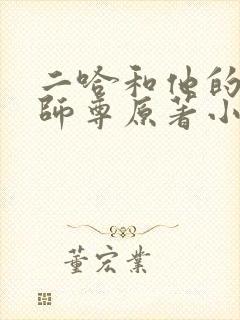 二哈和他的
師尊原著小
董宏業